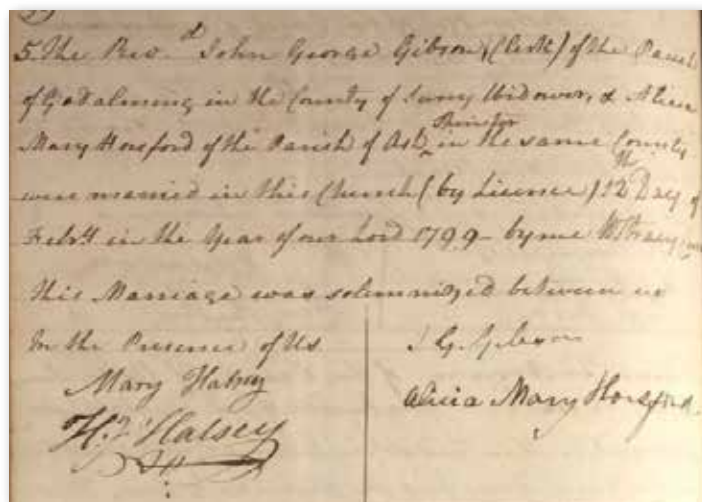 5. The Revd. John George Gibson (Clerk) of the Parish
of Godalming in the County of Surry Widower, & Alicia
Mary Horsford of the Parish of Ash Spinster in the same County
were married in this Church (by Licence) 12th Day of
Febry in the Year of our Lord 1799 - by me
This Marriage was solemnized between us
In the Presence of Us
Mary Halsey
H. Halsey
J G. Gibson
Alicia Mary Horsford.